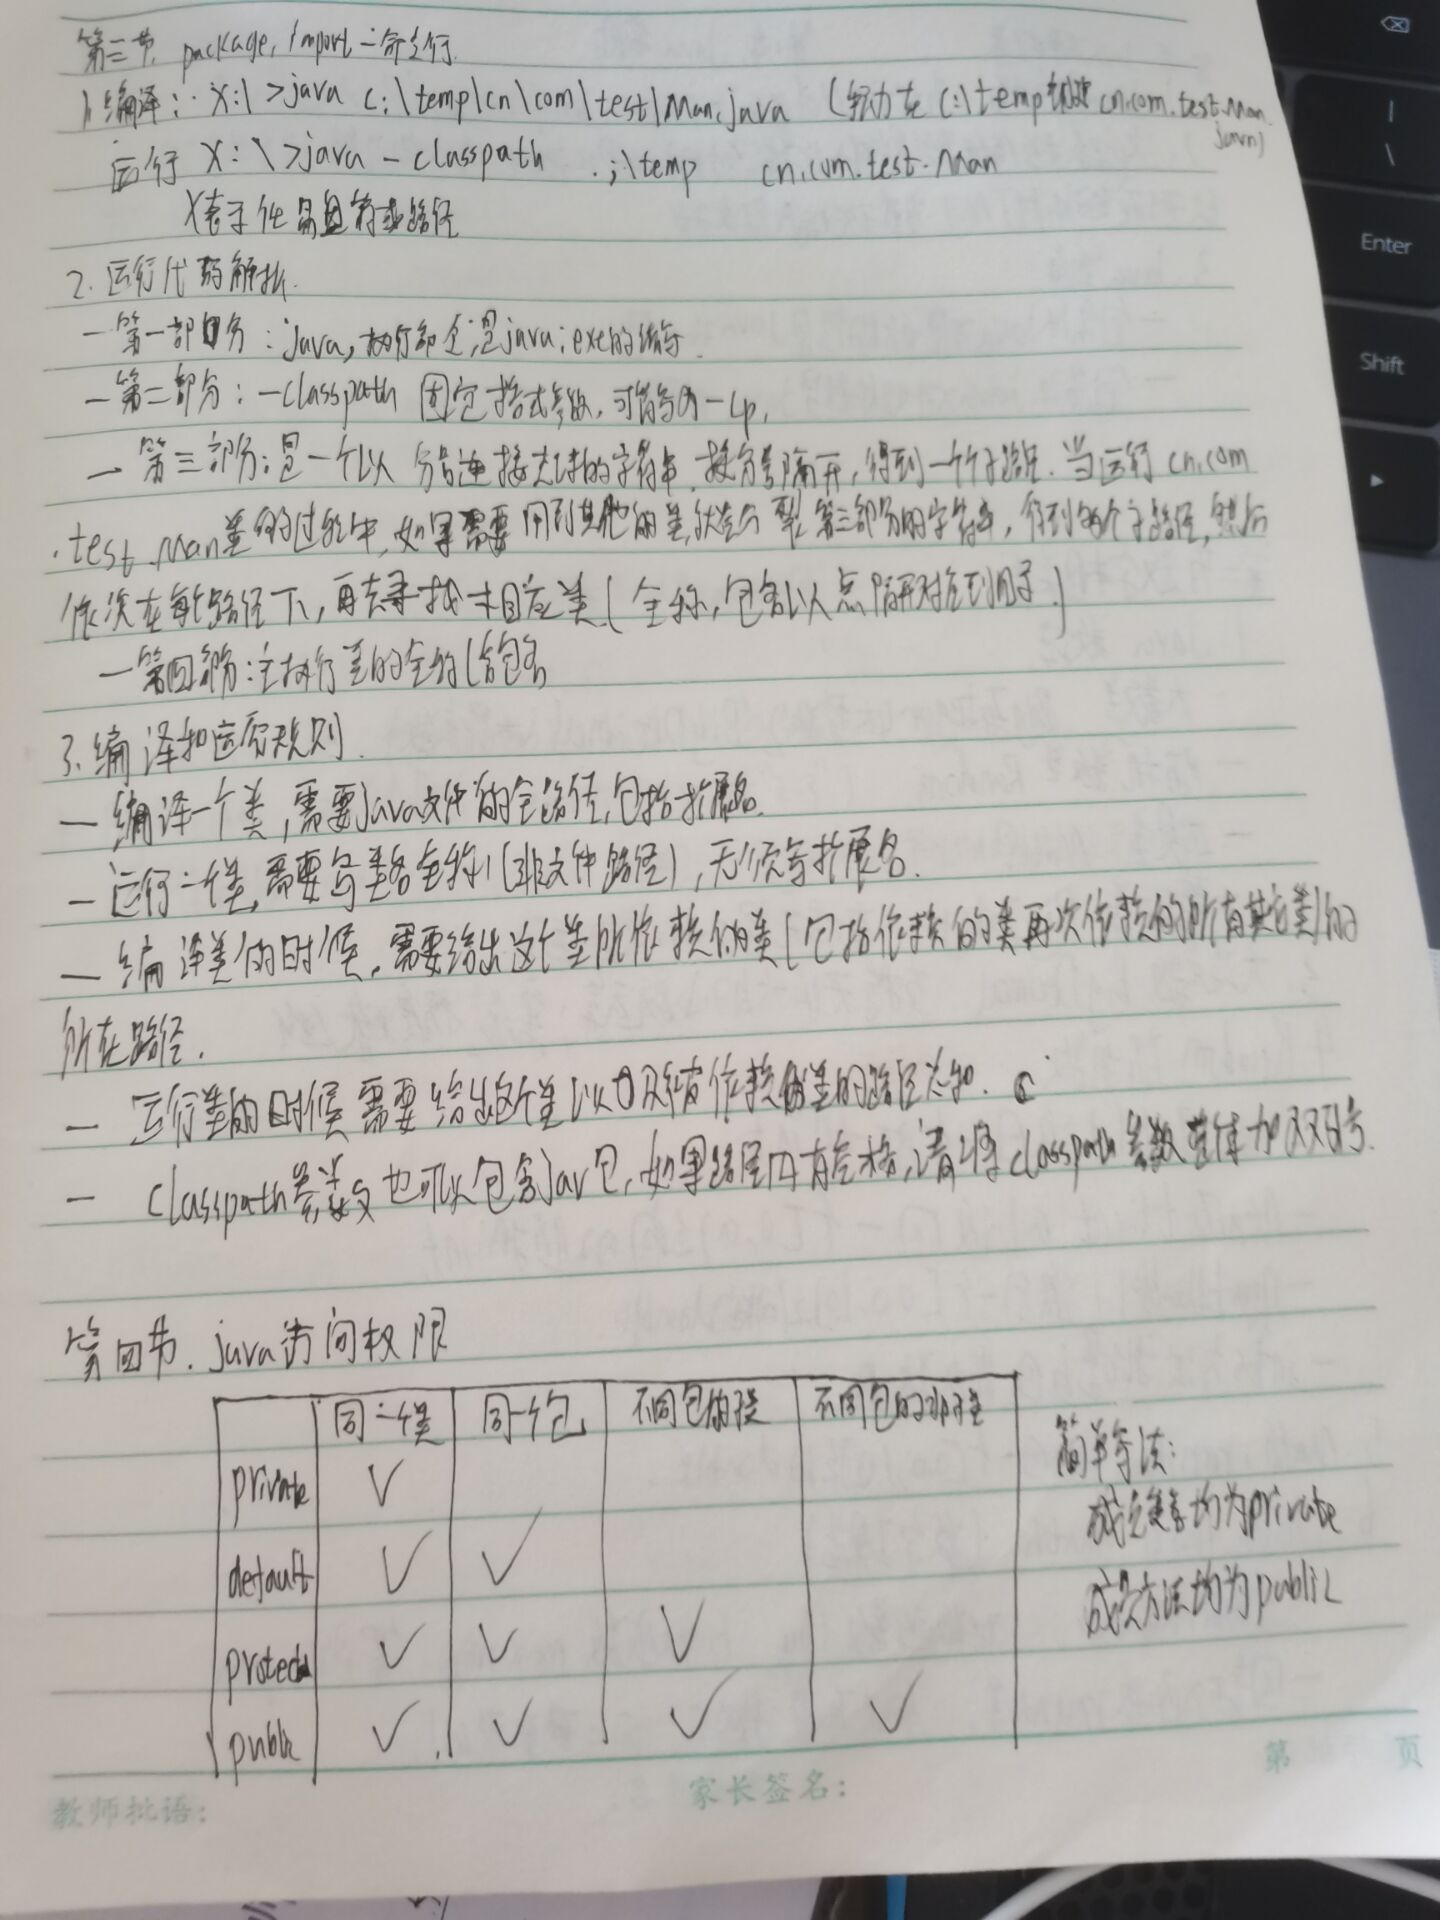 第三节. package, import 一命令行
1. 编译: X:\ >java c:\temp\cn\com\test\Man.java (在 C:\temp cn.com.test.Man.java)
运行 X:\ >java - classpath .;\temp cn.com.test.Man
X表示任意盘符或路径
2. 运行代码解析.
— 第一部分: java, 执行命令,是java.exe的缩写.
— 第二部分: —classpath 固定格式参数, 可简写为 —cp,
— 第三部分:是一个以 分号连接起来的字符串, 按分号隔开, 得到一个个子路径. 当运行 cn.com
.test.Man类的过程中,如果需要用到其他的类,就会分裂第三部分的字符串, 得到多个子路径,然后
依次在每个路径下, 再去寻找相应类(全称, 包名以点隔开对应到目录.)
— 第四部分: 主执行类的全称(含包名
3. 编译和运行规则.
— 编译一个类, 需要java文件的全路径, 包括扩展名.
— 运行一个类, 需要写类名全称(非文件路径), 无须写扩展名.
— 编译类的时候, 需要给出这个类所依赖的类(包括依赖的类再次依赖的所有其它类)的
所在路径.
— 运行类的时候 需要给出这个类以及所有依赖的类的路径总和.
— classpath参数也可以包含jar包, 如果路径内有空格, 请将classpath参数整体加双引号.
第四节. java访问权限
同一个类 同一个包 不同包的子类 不同包的非子类
private ✓
default ✓ ✓
protected ✓ ✓ ✓
public ✓ ✓ ✓ ✓
简单写法:
成员变量均为private
成员方法均为public
教师批语: 家长签名: 第 页
Enter
Shift